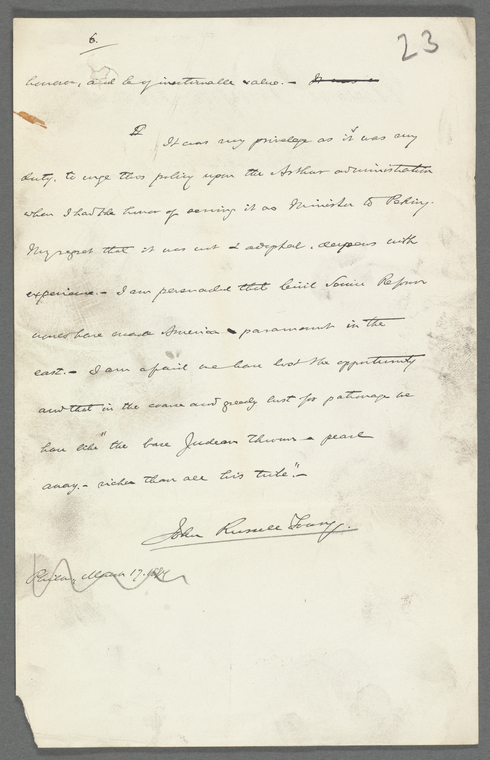 6.
23
honor, and be of inestimable value. — It was a
It was my privilege as it was my
duty, to urge this policy upon the Arthur administration
when I had the honor of serving it as Minister to Peking.
My regret that it was not adopted, deepens with
experience. — I am persuaded that Civil Service Reform
would have made America paramount in the
east. — I am afraid we have lost the opportunity
and that in the coarse and greedy lust for patronage we
have like "the base Judean thrown a pearl
away, — richer than all his tribe". —
John Russell Young.
March 17.